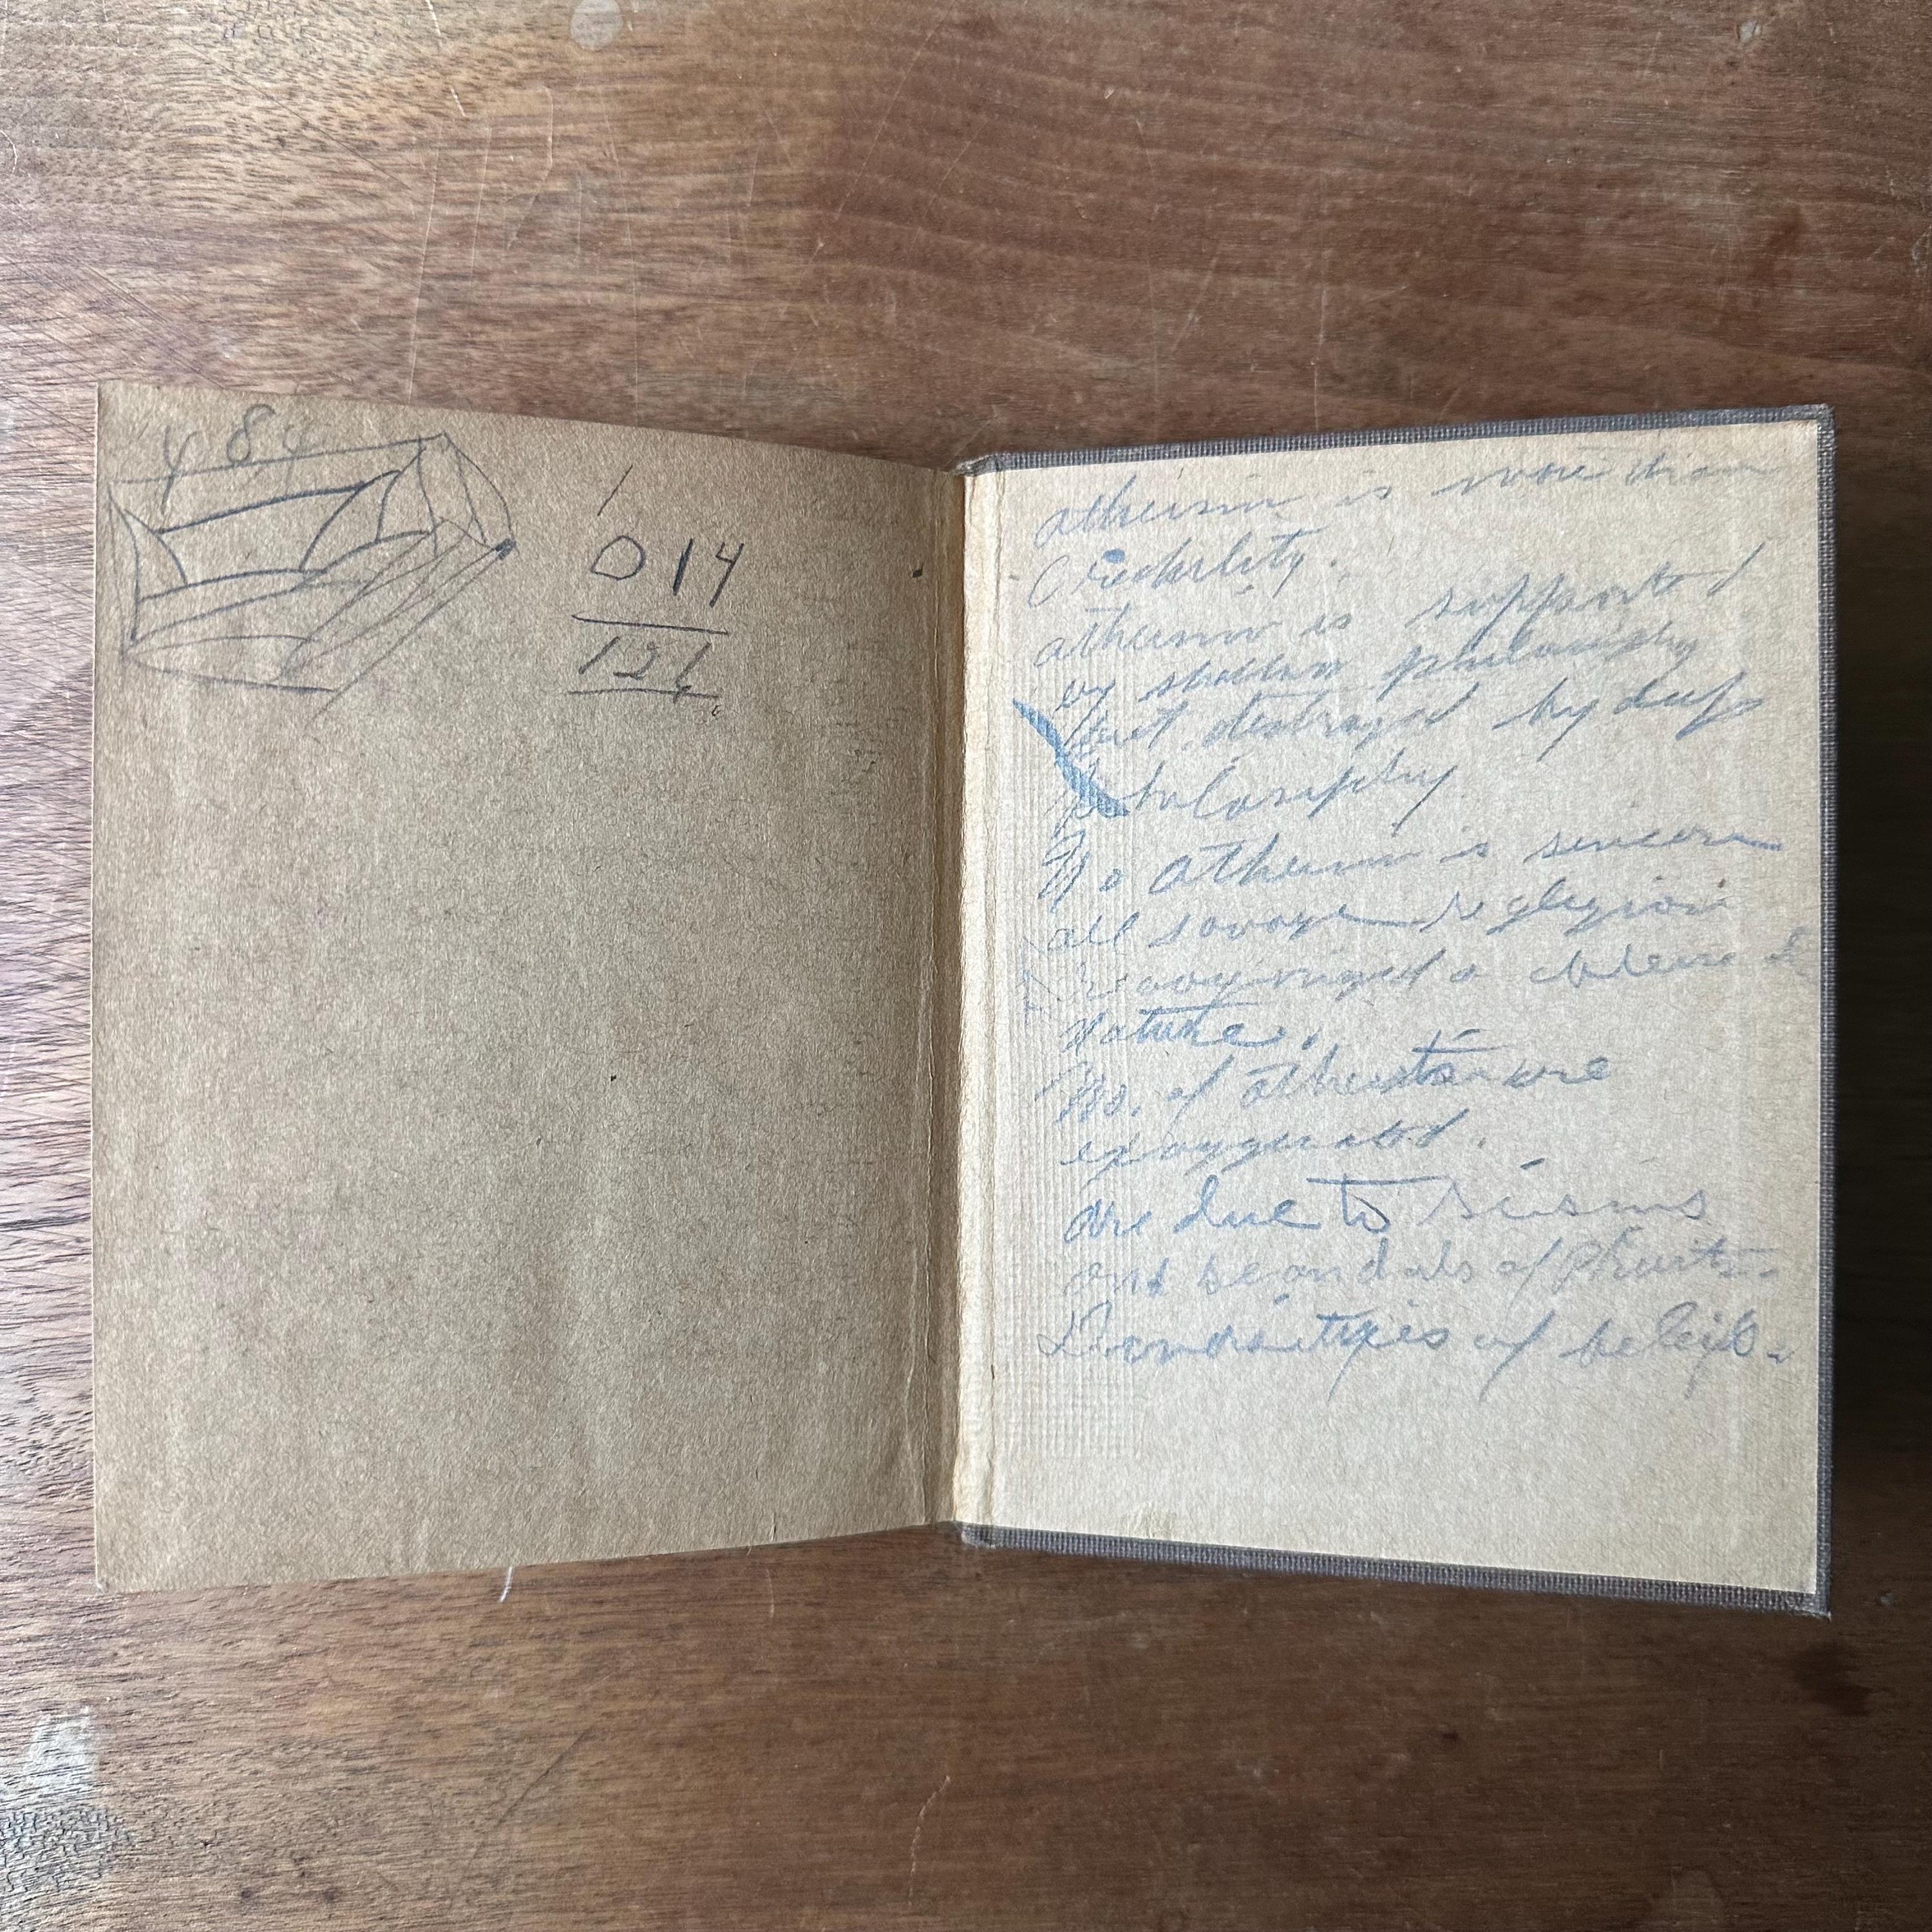 484
014
126
atheism is more than
Credulity.
atheism is supported
by shallow philosophy
but destroyed by deep
philosophy.
No atheism is sincere
all savage
a
nature.
No. of atheists are
exaggerated.
are due to
and scandals of
of